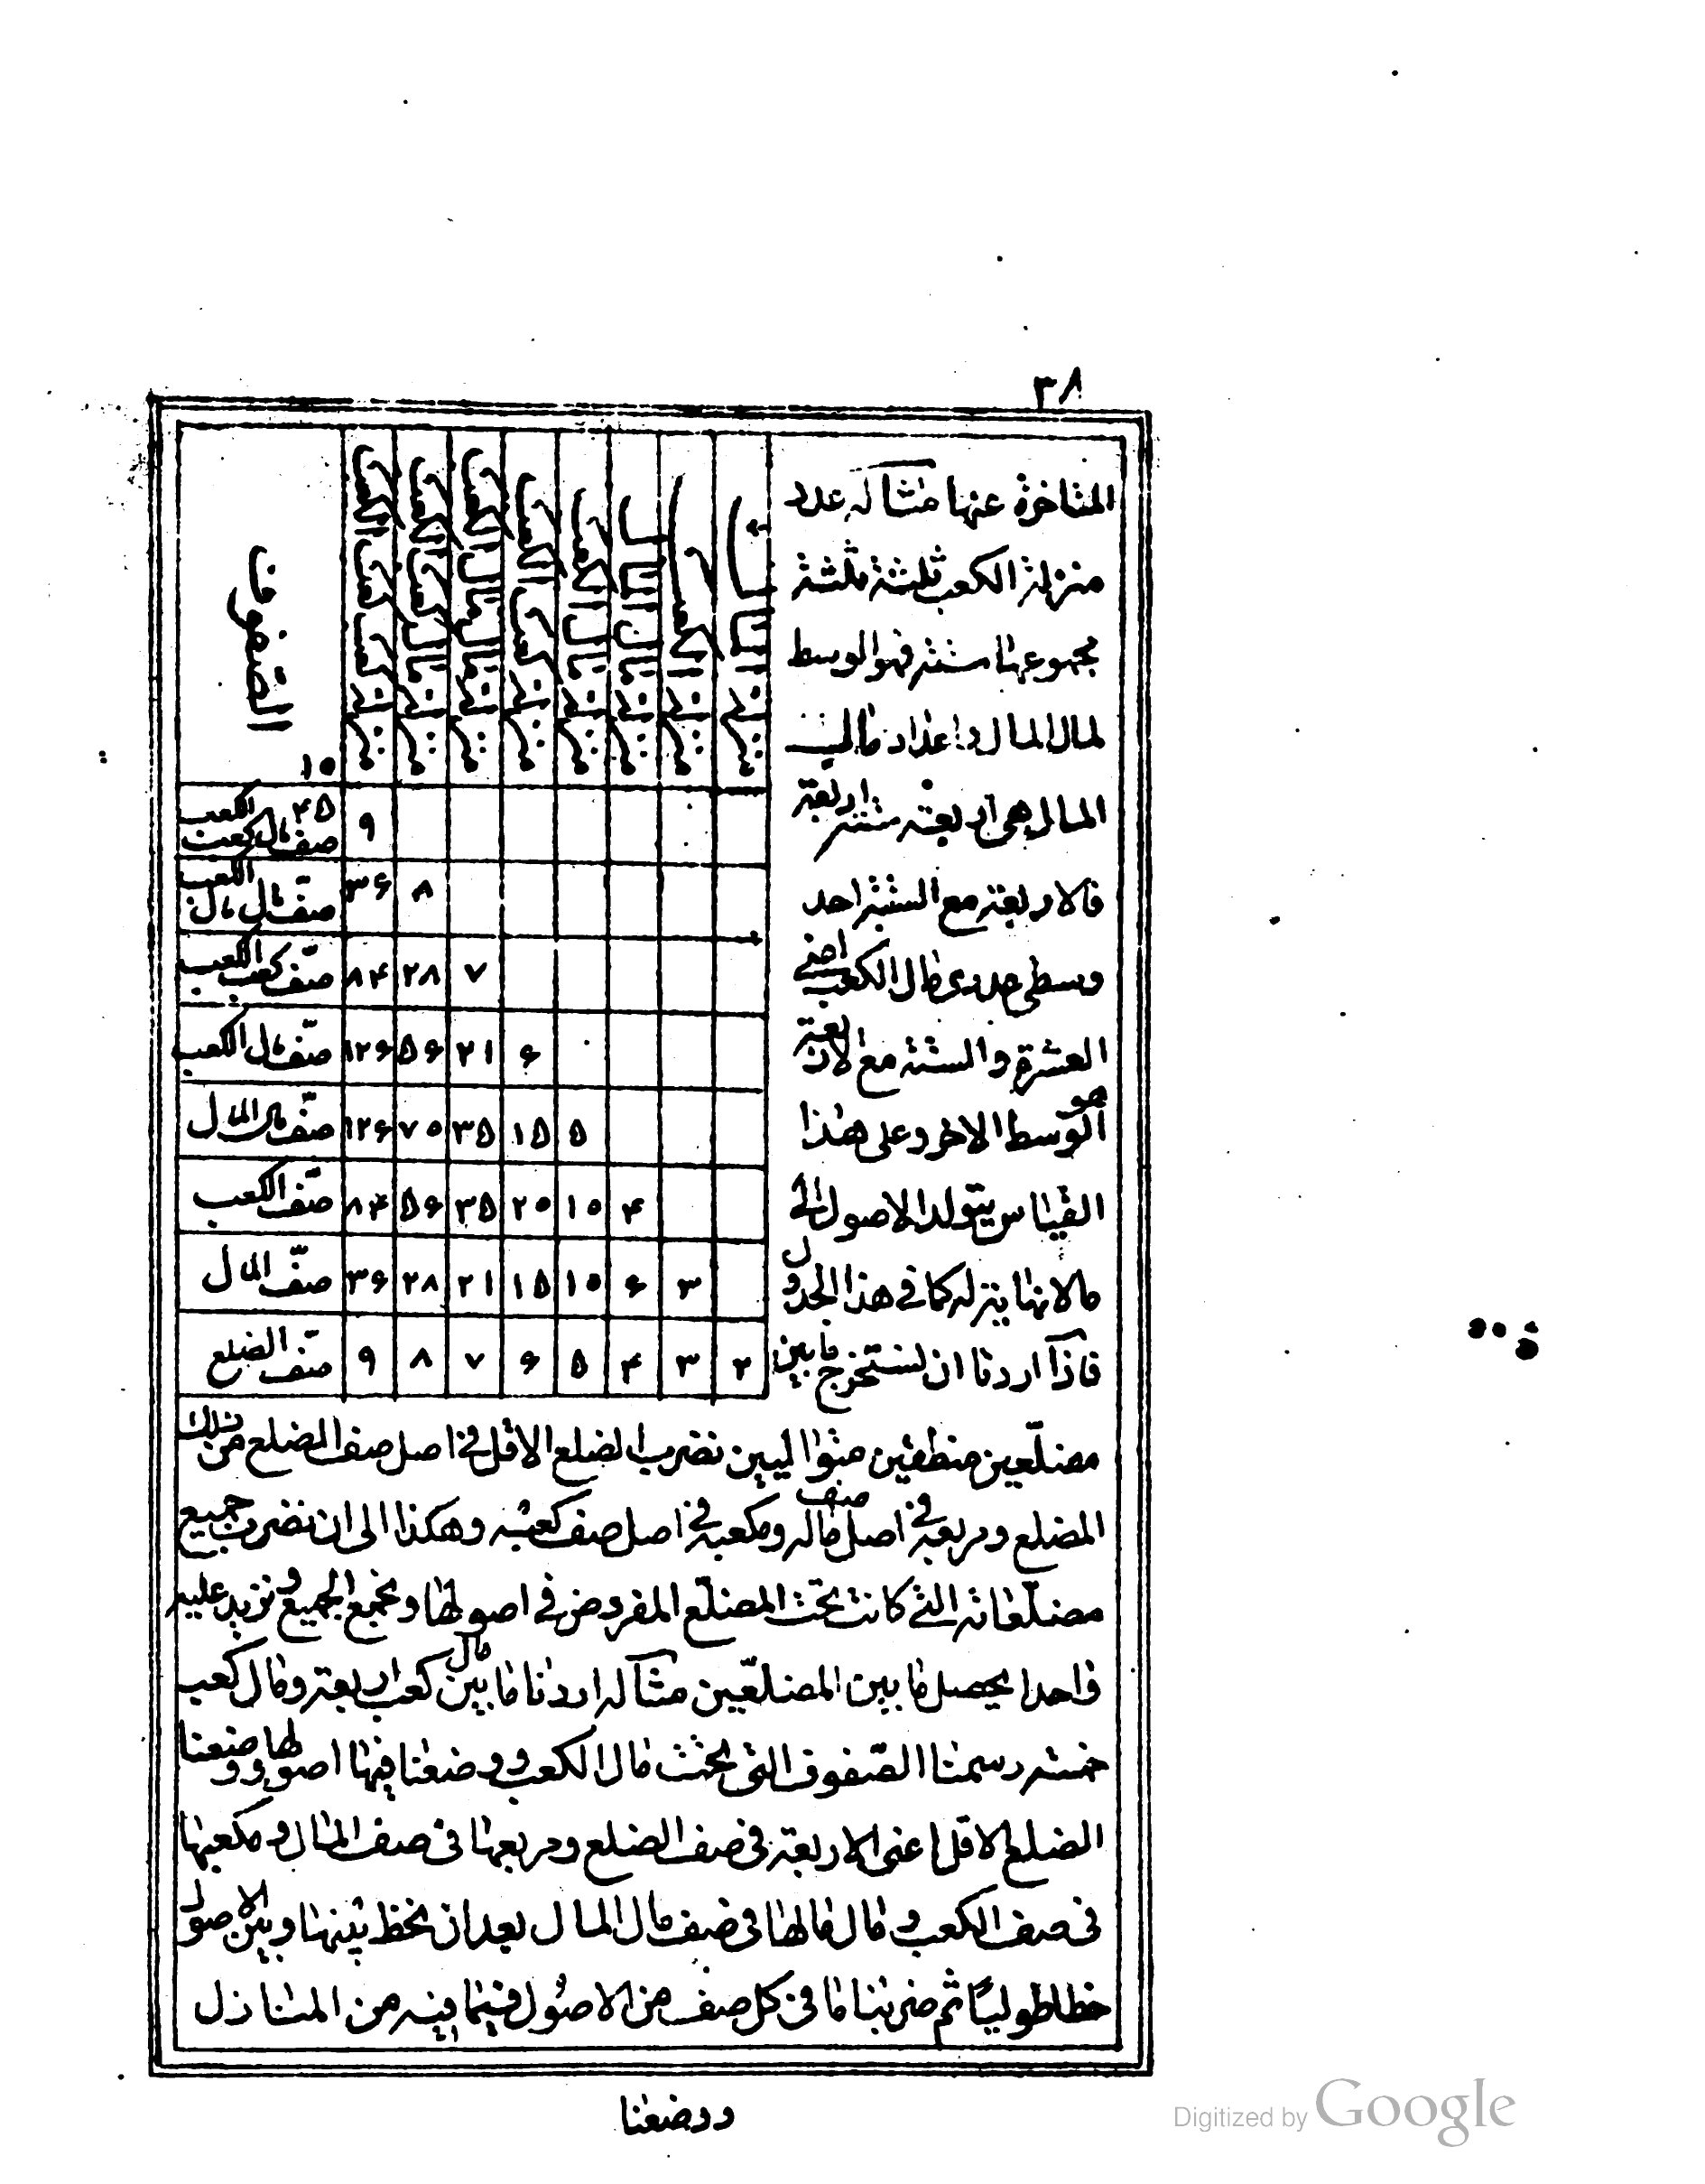 ٣٨
المتاخرة عنها مثاله عدد
منزلة الكعب ثلثة ثلثة
مجموعهما ستة فهو الوسط
لمال المال و اعداد منزلة
المال هي اربعة ستة اربعة
فالاربعة مع الستة احد
وسطى عددى مال الكعب اعنى
العشرة و الستة مع الاربعة
هو الوسط الاخر و على هذا
القياس يتولد الاصول الى
ما لا نهاية له كما فى هذا الجدول
فاذا اردنا ان نستخرج ما بين
الصفوف
١٥
٤٥
صف مال كعب الكعب ٩
صف مال مال الكعب ٣۶ ٨
صف كعب الكعب ٨۴ ٢٨ ٧
صف مال الكعب ١٢۶ ۵۶ ٢١ ۶
صف مال المال ١٢۶ ٧٠ ٣۵ ١۵ ۵
صف الكعب ٨۴ ۵۶ ٣۵ ٢٠ ١٠ ۴
صف المال ٣۶ ٢٨ ٢١ ١۵ ١٠ ۶ ٣
صف الضلع ٩ ٨ ٧ ۶ ۵ ۴ ٣ ٢
مضلعين منطقين متواليين نضرب الضلع الاقل فى اصل صف الضلع من تلك
المضلع و مربعه فى اصل صف ماله و مكعبه فى اصل صف كعبه و هكذا الى ان نضرب جميع
مضلعاته التى كانت تحت المضلع المفروض فى اصولها و نجمع الجميع و نزيد عليه
واحدا يحصل ما بين المضلعين مثاله اردنا ما بين مال كعب اربعة و مال كعب
خمسة رسمنا الصفوف التى تحت مال الكعب و وضعنا فيها اصولها و وضعنا
الضلع الاقل اعنى الاربعة فى صف الضلع و مربعها فى صف المال و مكعبها
فى صف الكعب و مال مالها فى صف مال المال بعد ان نخط بينها و بين الاصول
خطا طوليا ثم ضربنا ما فى كل صف من الاصول فيما فيه من المنازل
و وضعنا
Digitized by Google